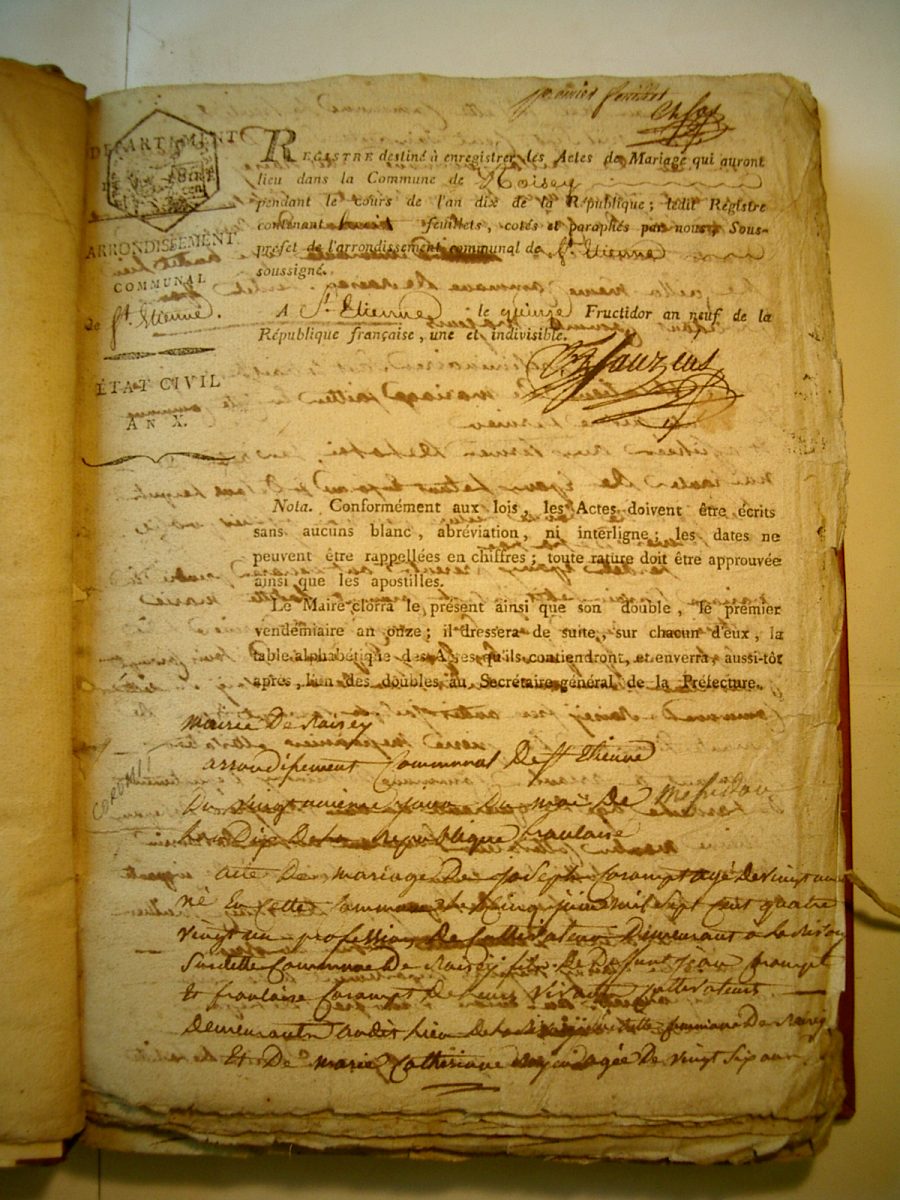 premier feuillet
DÉPARTEMENT
DE
ARRONDISSEMENT
COMMUNAL
de St. Etienne.
ÉTAT CIVIL
AN X.
REGISTRE destiné à enregistrer les Actes de Mariage qui auront
lieu dans la Commune de
pendant le cours de l'an dix de la République ; ledit Régistre
contenant huit feuillets, cotés et paraphés par nous Sous-
préfet de l'arrondissement communal de St. Etienne
soussigné.
A St. Etienne le quinze Fructidor an neuf de la
République française, une et indivisible.
Nota. Conformément aux lois, les Actes doivent être écrits
sans aucuns blanc, abréviation, ni interligne ; les dates ne
peuvent être rappellées en chiffres ; toute rature doit être approuvée
ainsi que les apostilles.
Le Maire clorra le présent ainsi que son double, le premier
vendémiaire an onze ; il dressera de suite, sur chacun d'eux, la
table alphabétique des Actes qu'ils contiendront, et enverra, aussi-tôt
après, l'un des doubles au Secrétaire-général de la Préfecture.
mairie De
arrondissement Communal De St Etienne
Du jour Du mois De Messidor
La Republique francaise
acte De mariage De joseph Corompt agé De vingt ans
né En cette Commune le Cinq juin mil Sept Cent quatre
vingt un profession De Cultivateur Demeurant a
Susditte Commune De fils De Defunt jean Corompt
Et francaise Corompt
Demeurant audit lieu De Commune De
Et De marie Catherine agée De vingt Six ans